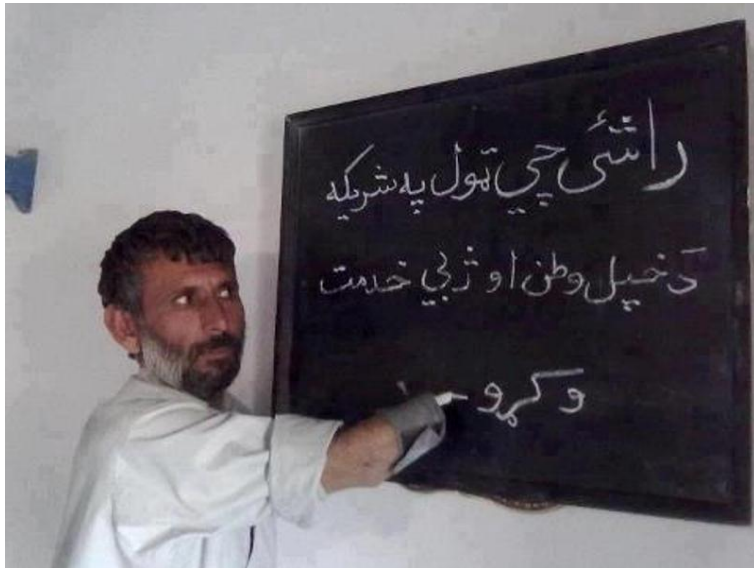 راشئ چې ټول په شریکه
دَ خپل وطن او ژبې خدمت
وکړو -